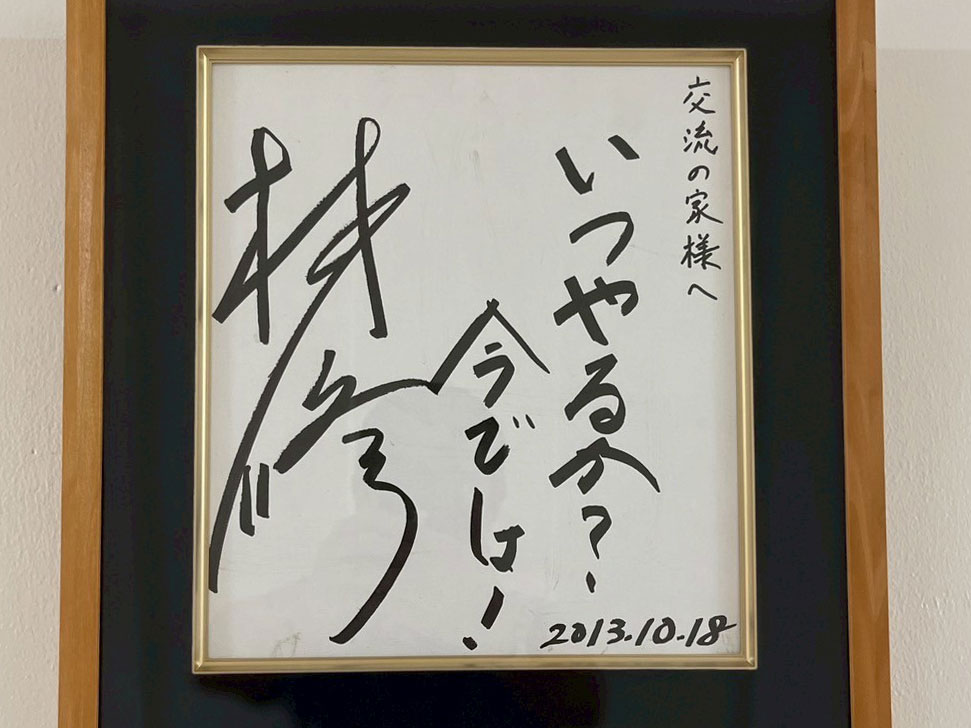 交流の家様へ
いつやるか?
今でしょ!
林修
2013.10.18